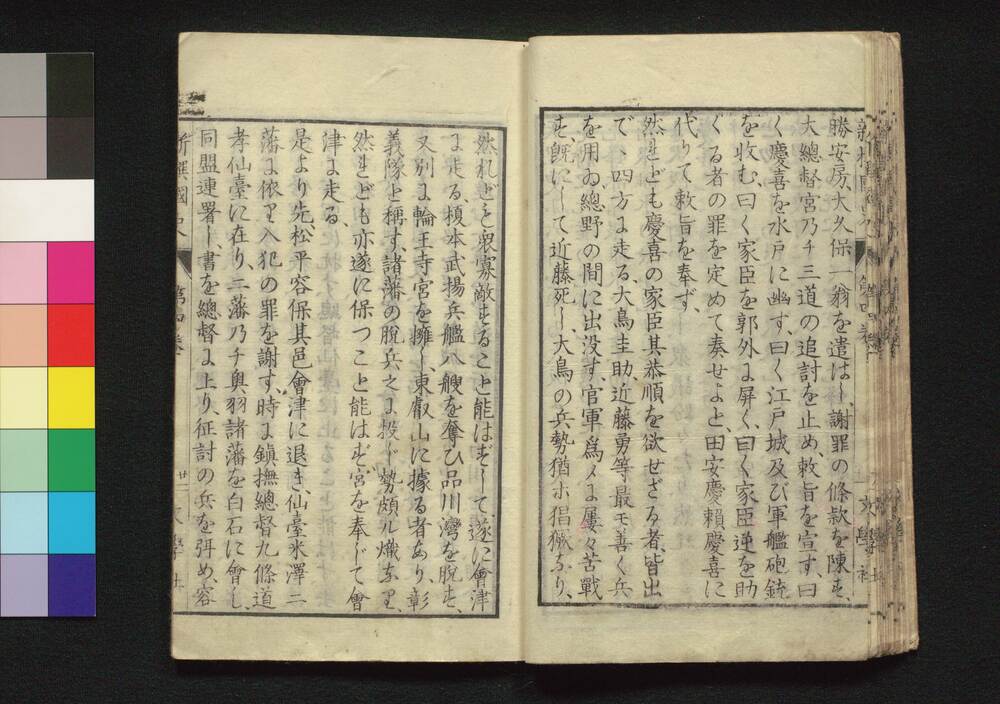 勝安房、大久保一翁を遣はし、謝罪の條款を陳す、
大總督宮乃チ三道の追討を止め、敕旨を宣す、曰
く慶喜を水戸に幽す、曰く江戸城及び軍艦砲銃
を收む、曰く家臣を郭外に屏く、曰く家臣逆を助
くる者の罪を定めて奏せよと、田安慶頼慶喜に
代りて敕旨を奉ず、
然れども慶喜の家臣其恭順を欲せざる者、皆出
で、四方に走る、大鳥圭助、近藤勇等最モ善く兵
を用ゐ、總野の間に出没す、官軍爲メに屢々苦戰
す、既にして近藤死し、大鳥の兵勢猶ホ猖獗なり、
然れども衆寡敵すること能はずして、遂に會津
に走る、榎本武揚兵艦八艘を奪ひ品川灣を脱す、
又別に輪王寺宮を擁し、東叡山に據る者あり、彰
義隊と稱す、諸藩の脱兵之に投じ勢頗ル熾なり、
然れども亦遂に保つこと能はず、宮を奉じて會
津に走る、
是より先、松平容保其邑會津に退き、仙臺米澤二
藩に依り入犯の罪を謝す、時に鎭撫總督九條道
孝仙臺に在り、二藩乃チ奥羽諸藩を白石に會し、
同盟連署し、書を總督に上り、征討の兵を弭め、容
新撰國史
第四卷
廿二
文學社